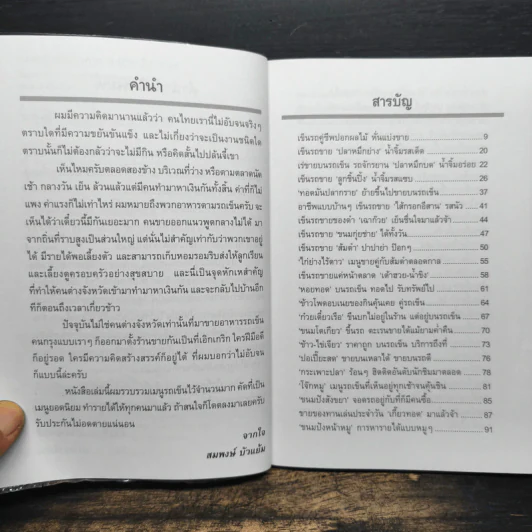 คำนำ
ผมมีความคิดมานานแล้วว่า คนไทยเรานี่ไม่อับจนจริงๆ
ตราบใดที่มีความขยันขันแข็ง และไม่เกี่ยงว่าจะเป็นงานชนิดใด
ตราบนั้นก็ไม่ต้องกลัวว่าจะไม่มีกิน หรือคิดสั้นไปปล้นจี้เขา
เห็นไหมครับตลอดสองข้าง บริเวณที่ว่าง หรือตามตลาดนัด
เช้า กลางวัน เย็น ล้วนแล้วแต่มีคนทำมาหาเงินกันทั้งสิ้น ค่าที่ก็ไม่
แพง ค่าแรงก็ไม่เท่าไหร่ ผมหมายถึงพวกอาหารตามรถเข็นครับ จะ
เห็นได้ว่าเดี๋ยวนี้มีกันเยอะมาก คนขายออกแนวพูดกลางไม่ได้ มา
จากถิ่นที่ราบสูงเป็นส่วนใหญ่ แต่นั่นไม่สำคัญเท่ากับว่าพวกเขาอยู่
ได้ มีรายได้พอเลี้ยงตัว และสามารถเก็บหอมรอมริบส่งให้ลูกเรียน
และเลี้ยงดูครอบครัวอย่างสุขสบาย และนี่เป็นจุดหักเหสำคัญ
ที่ทำให้คนต่างจังหวัดเข้ามาทำมาหาเงินกัน และจะกลับไปบ้านอีก
ทีก็ตอนถึงเวลาเกี่ยวข้าว
ปัจจุบันไม่ใช่คนต่างจังหวัดเท่านั้นที่มาขายอาหารรถเข็น
คนกรุงแบบเราๆ ก็ออกมาตั้งร้านขายกันเป็นที่เอิกเกริก ใครฝีมือดี
ก็อยู่รอด ใครมีความคิดสร้างสรรค์ก็อยู่ได้ ที่ผมบอกว่าไม่อับจน
ก็แบบนี้ล่ะครับ
หนังสือเล่มนี้ผมรวบรวมเมนูรถเข็นไว้จำนวนมาก คัดที่เป็น
เมนูยอดนิยม ทำรายได้ให้ทุกคนมาแล้ว ถ้าสนใจก็โดดลงมาเลยครับ
รับประกันไม่อดตายแน่นอน
จากใจ
สมพงษ์ บัวแย้ม
สารบัญ
เข็นรถคู่ชีพปอกผลไม้ หั่นแบ่งขาย 9
เข็นรถขาย 'ปลาหมึกย่าง' น้ำจิ้มรสเด็ด 16
เร่ขายบนรถเข็น รถจักรยาน 'ปลาหมึกบด' น้ำจิ้มอร่อย 22
เข็นรถขาย 'ลูกชิ้นปิ้ง' น้ำจิ้มรสแซบ 26
'ทอดมันปลากราย' ย้ายขึ้นไปขายบนรถเข็น 31
อาชีพแบบบ้านๆ เข็นรถขาย 'ไส้กรอกอีสาน' รสนัว 37
เข็นรถขายของดำ 'เฉาก๊วย' เย็นชื่นใจมาแล้วจ้า 41
เข็นรถขาย 'ขนมกุยช่าย' ได้ทั้งวัน 47
เข็นรถขาย 'ส้มตำ' ปาปาย่า ป๊อกๆ 50
'ไก่ย่างไร้ควา' เมนูขายคู่กับส้มตำตลอดกาล 55
เข็นรถขายแค่หน้าตลาด 'เต้าฮวย-น้ำขิง' 58
'หอยทอด' บนรถเข็น ทอดไป รับทรัพย์ไป 61
'ข้าวโพดอบเนยของกินคุ้นเคย คู่รถเข็น 64
'ก๋วยเตี๋ยวเรือ' ขึ้นบกไม่อยู่ในร้าน แต่อยู่บนรถเข็น 67
'ขนมโตเกียว' ขึ้นรถ ตะเวนขายได้แม้ยามค่ำคืน 70
'ข้าว-ไข่เจียว' ราคาถูก บนรถเข็น บริการถึงที่ 73
'ปอเปี๊ยะสด' ขายบนเหลาได้ ขายบนรถดี 76
'กระเพาะปลา' ร้อนๆ ฮิตติดอันดับนักชิมมาตลอด 78
'โจ๊กหมู' เมนูรถเข็นที่เห็นอยู่ทุกเช้าจนคุ้นชิน 81
'ขนมปังสังขยา' จอดรถอยู่กับที่ก็มีคนซื้อ 85
ขายของทานเล่นประจำวัน 'เกี๊ยวทอด' มาแล้วจ้า 87
'ขนมปังหน้าหมู' การหารายได้แบบหมูๆ 91